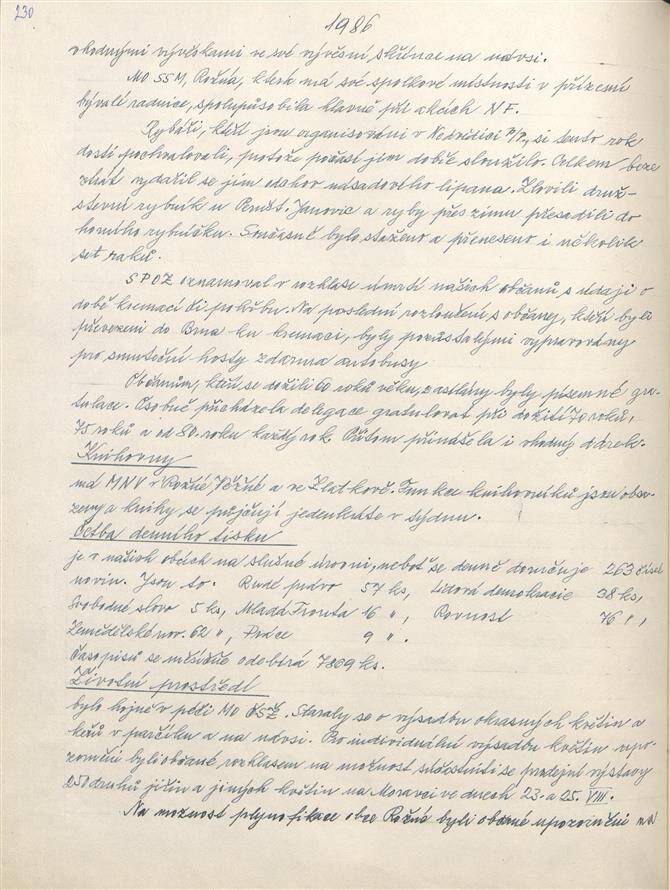 230
1986
vhodnými vývěskami ve své vývěsní skřínce na návsi.
MO SSM, Rožná, která má své spolkové místnosti v přízemí
bývalé radnice, spolupůsobila hlavně při akcích NF.
Rybáři, kteří jsou organisováni v Nedvědici n/P., si tento rok
dosti pochvalovali, protože počasí jim dobře sloužilo. Celkem beze
ztrát vydařil se jim odchov násadového lipana. Zlovili druž-
stevní rybník u Janovic a ryby přes zimu přesadili do
horního rybníčku. Současně bylo staženo a přeneseno i několik
set raků.
SPOZ oznamoval v rozhlase úmrtí našich občanů s údaji o
době kremací či pohřbu. Na poslední rozloučení s občany, kteří byli
převezeni do Brna ku kremaci, byly pozůstalými vypravovány
pro smuteční hosty zdarma autobusy
Občanům, kteří se dožili 60 roků věku, zasílány byly písemné gra-
tulace. Osobně přicházela delegace gratulovat při dožití 70 roků,
75 roků a od 80. roku každý rok. Přitom přinášela i vhodný dárek.
Knihovny
má MNV v Rožné, Věžné a ve Zlatkově. Funkce knihovníků jsou obsa-
zeny a knihy se půjčují jedenkráte v týdnu.
Četba denního tisku
je v našich obcích na slušné úrovni, neboť se denně doručuje 263 čísel
novin. Jsou to: Rudé právo 57 ks, Lidová demokracie 38 ks,
Svobodné slovo 5 ks, Mladá Fronta 16 ", Rovnost 76 ",
Zemědělské nov. 62 ", Práce 9 ".
Časopisů se měsíčně odebírá 7809 ks.
Životní prostředí
bylo hojně v péči MO ČSŽ. Staraly se o výsadbu okrasných květin a
keřů v parčíku a na návsi. Pro individuální výsadbu květin upo-
zorněni byli občané rozhlasem na možnost súčastniti se prodejní výstavy
250 druhů jiřin a jiných květin na Moravci ve dnech 23. a 25. VIII.
Na možnost plynofikace obce Rožná byli občané upozorněni na